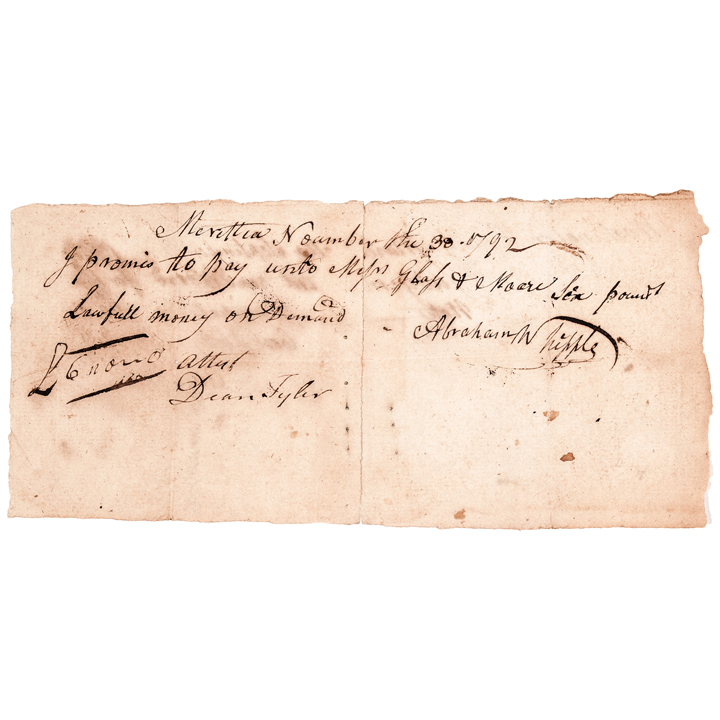 Merettia Noumber the 30 1792
I promis to pay unto Mess Glass & Moore Six pounds
Lawfull money on Demand
Abraham Whipple
£6 " 0 " 0 attest
Dean Tyler